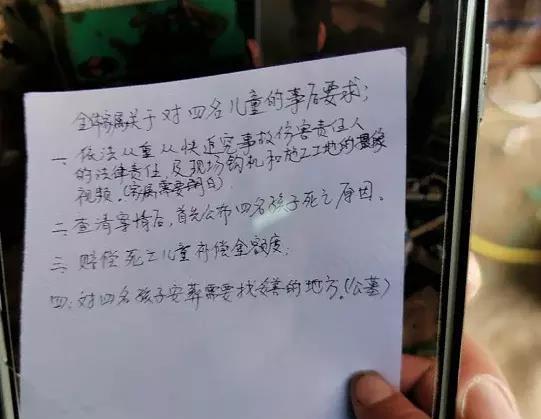 全体家属关于对四名儿童的事后要求;
一、依法从重从快追究事故伤害责任人
的法律责任,及现场钩机和施工工地的摄像
视频。(家属需要明白)
二、查清案情后,首先公布四名孩子死亡原因。
三、赔偿死亡儿童补偿金额度;
四、对四名孩子安葬需要找妥善的地方。(公墓)